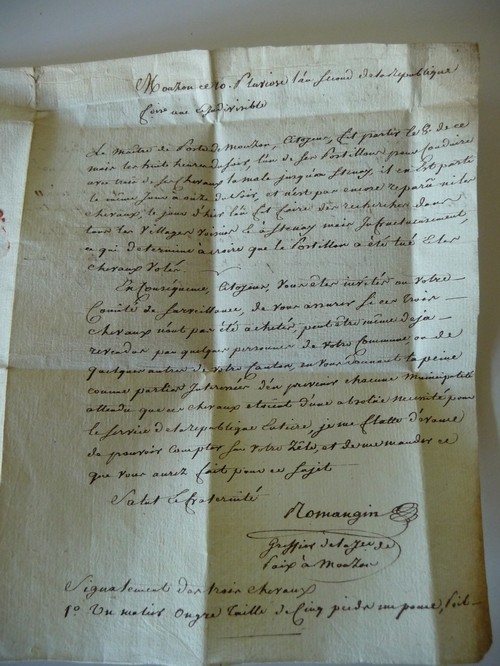 Mouzon ce 20. Pluviose l'an second de la republique
une et indivisible
Le Maitre de Poste de Mouzon, Citoyens, est partir le 5. de ce
mois les huit heures du soir, l'un de ses Postillons pour conduire
avec trois de ses chevaux la male jusqu'a Stenay, il en est parti
le même jour à onze du soir, et n'est pas encore reparu ni les
chevaux, le jour d'hier l'on fait faire des recherches dans
tous les villages voisins et à Stenay mais infructueusement,
ce qui determine à croire que le Postillon a été tué et les
chevaux volés.
En conséquence, Citoyens, vous êtes invités ou votre
Comité de Surveillance, de vous assurer si ces trois
chevaux n'ont pas été achetés, peut être même deja
revendus par quelques personnes de votre Commune, ou de
quelques autres de votre Canton, en vous donnant la peine
comme parties d'en prevenir chacune Municipalité
attendu que ces chevaux etoient d'une absolue necessité pour
le service de la republique entiere, je me flatte d'avance
de pouvoir compter sur votre zèle, et de me mander ce
que vous aurez fait pour ce sujet
Salut et fraternité
Romangin
Greffier de la de
Paix à Mouzon
Signalement des trois chevaux
1º. Un ongre taille de cinq pieds un pouce,